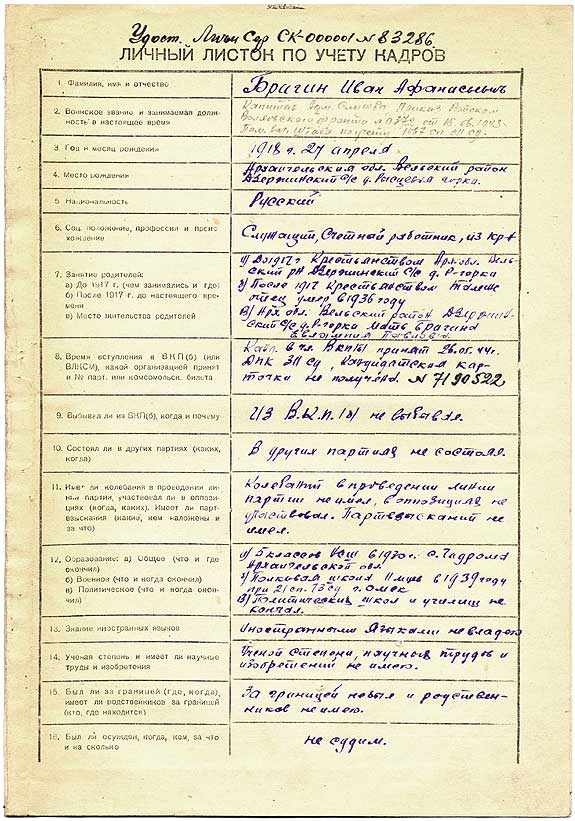 Удост. Личн Сер СК-000001 № 83286
ЛИЧНЫЙ ЛИСТОК ПО УЧЕТУ КАДРОВ
1. Фамилия, имя и отчество
Брагин Иван Афанасьевич
2. Воинское звание и занимаемая должность в настоящее время
Капитан Адм. Службы Приказ Войскам
Волховского фронта № 0379 от 15.06.1943.
Пом. нач. штаба по учету 1067 сп 311 сд.
3. Год и месяц рождения
1918 г. 27 апреля
4. Место рождения
Архангельская обл. Вельский район
Дзержинский С/с д. Рысцевая горка.
5. Национальность
Русский
6. Соц. положение, профессия и происхождение
Служащий, Счетной работник, из кр-н
7. Занятие родителей:
а) До 1917 г. (чем занимались и где)
б) После 1917 г. до настоящего времени
в) Место жительства родителей
а) До 1917 г. Крестьянством Арх. обл. Вельский
рн Дзержинский С/с д. Р-горка
б) После 1917 Крестьянством Тоже
отец умер в 1936 году
в) Арх. обл. Вельский район Дзержинский
С/с д. Р-горка Мать Брагина
Евлампия Павловна
8. Время вступления в ВКП(б) (или
ВЛКСМ), какой организацией принят
и № парт. или комсомольск. билета
Канд. в чл. ВКП(б) принят 26.05.44 г.
ДПК 311 сд, кандидатская кар-
точка не получена. № 7190522
9. Выбывал ли из ВКП(б), когда и почему
Из В.К.П.(б) не выбывал.
10. Состоял ли в других партиях (каких,
когда)
В других партиях не состоял.
11. Имел ли колебания в проведении линии
партии, участвовал ли в оппозициях
(когда, каких). Имеет ли партвзыскания
(какие, кем наложены и
за что)
Колебаний в проведении линии
партии не имел, в оппозициях не
участвовал. Партвзысканий не
имел.
12. Образование: а) Общее (что и где
окончил)
б) Военное (что и когда окончил)
в) Политическое (что и когда окончил)
а) 5 классов в 1930 г. с. Чадрома
Архангельской обл.
б) Полковая школа в 1939 году
при 21 сп. 73 сд г. Омск
в) Политических школ и училищ не
кончал.
13. Знание иностранных языков
Иностранными Языками не владею
14. Ученая степень и имеет ли научные
труды и изобретения
Ученой степени, научных трудов и
изобретений не имею.
15. Был ли за границей (где, когда),
имеет ли родственников за границей
(кто, где находится)
За границей не был и родствен-
ников не имею.
16. Был ли осужден, когда, кем, за что
и на сколько
не судим.